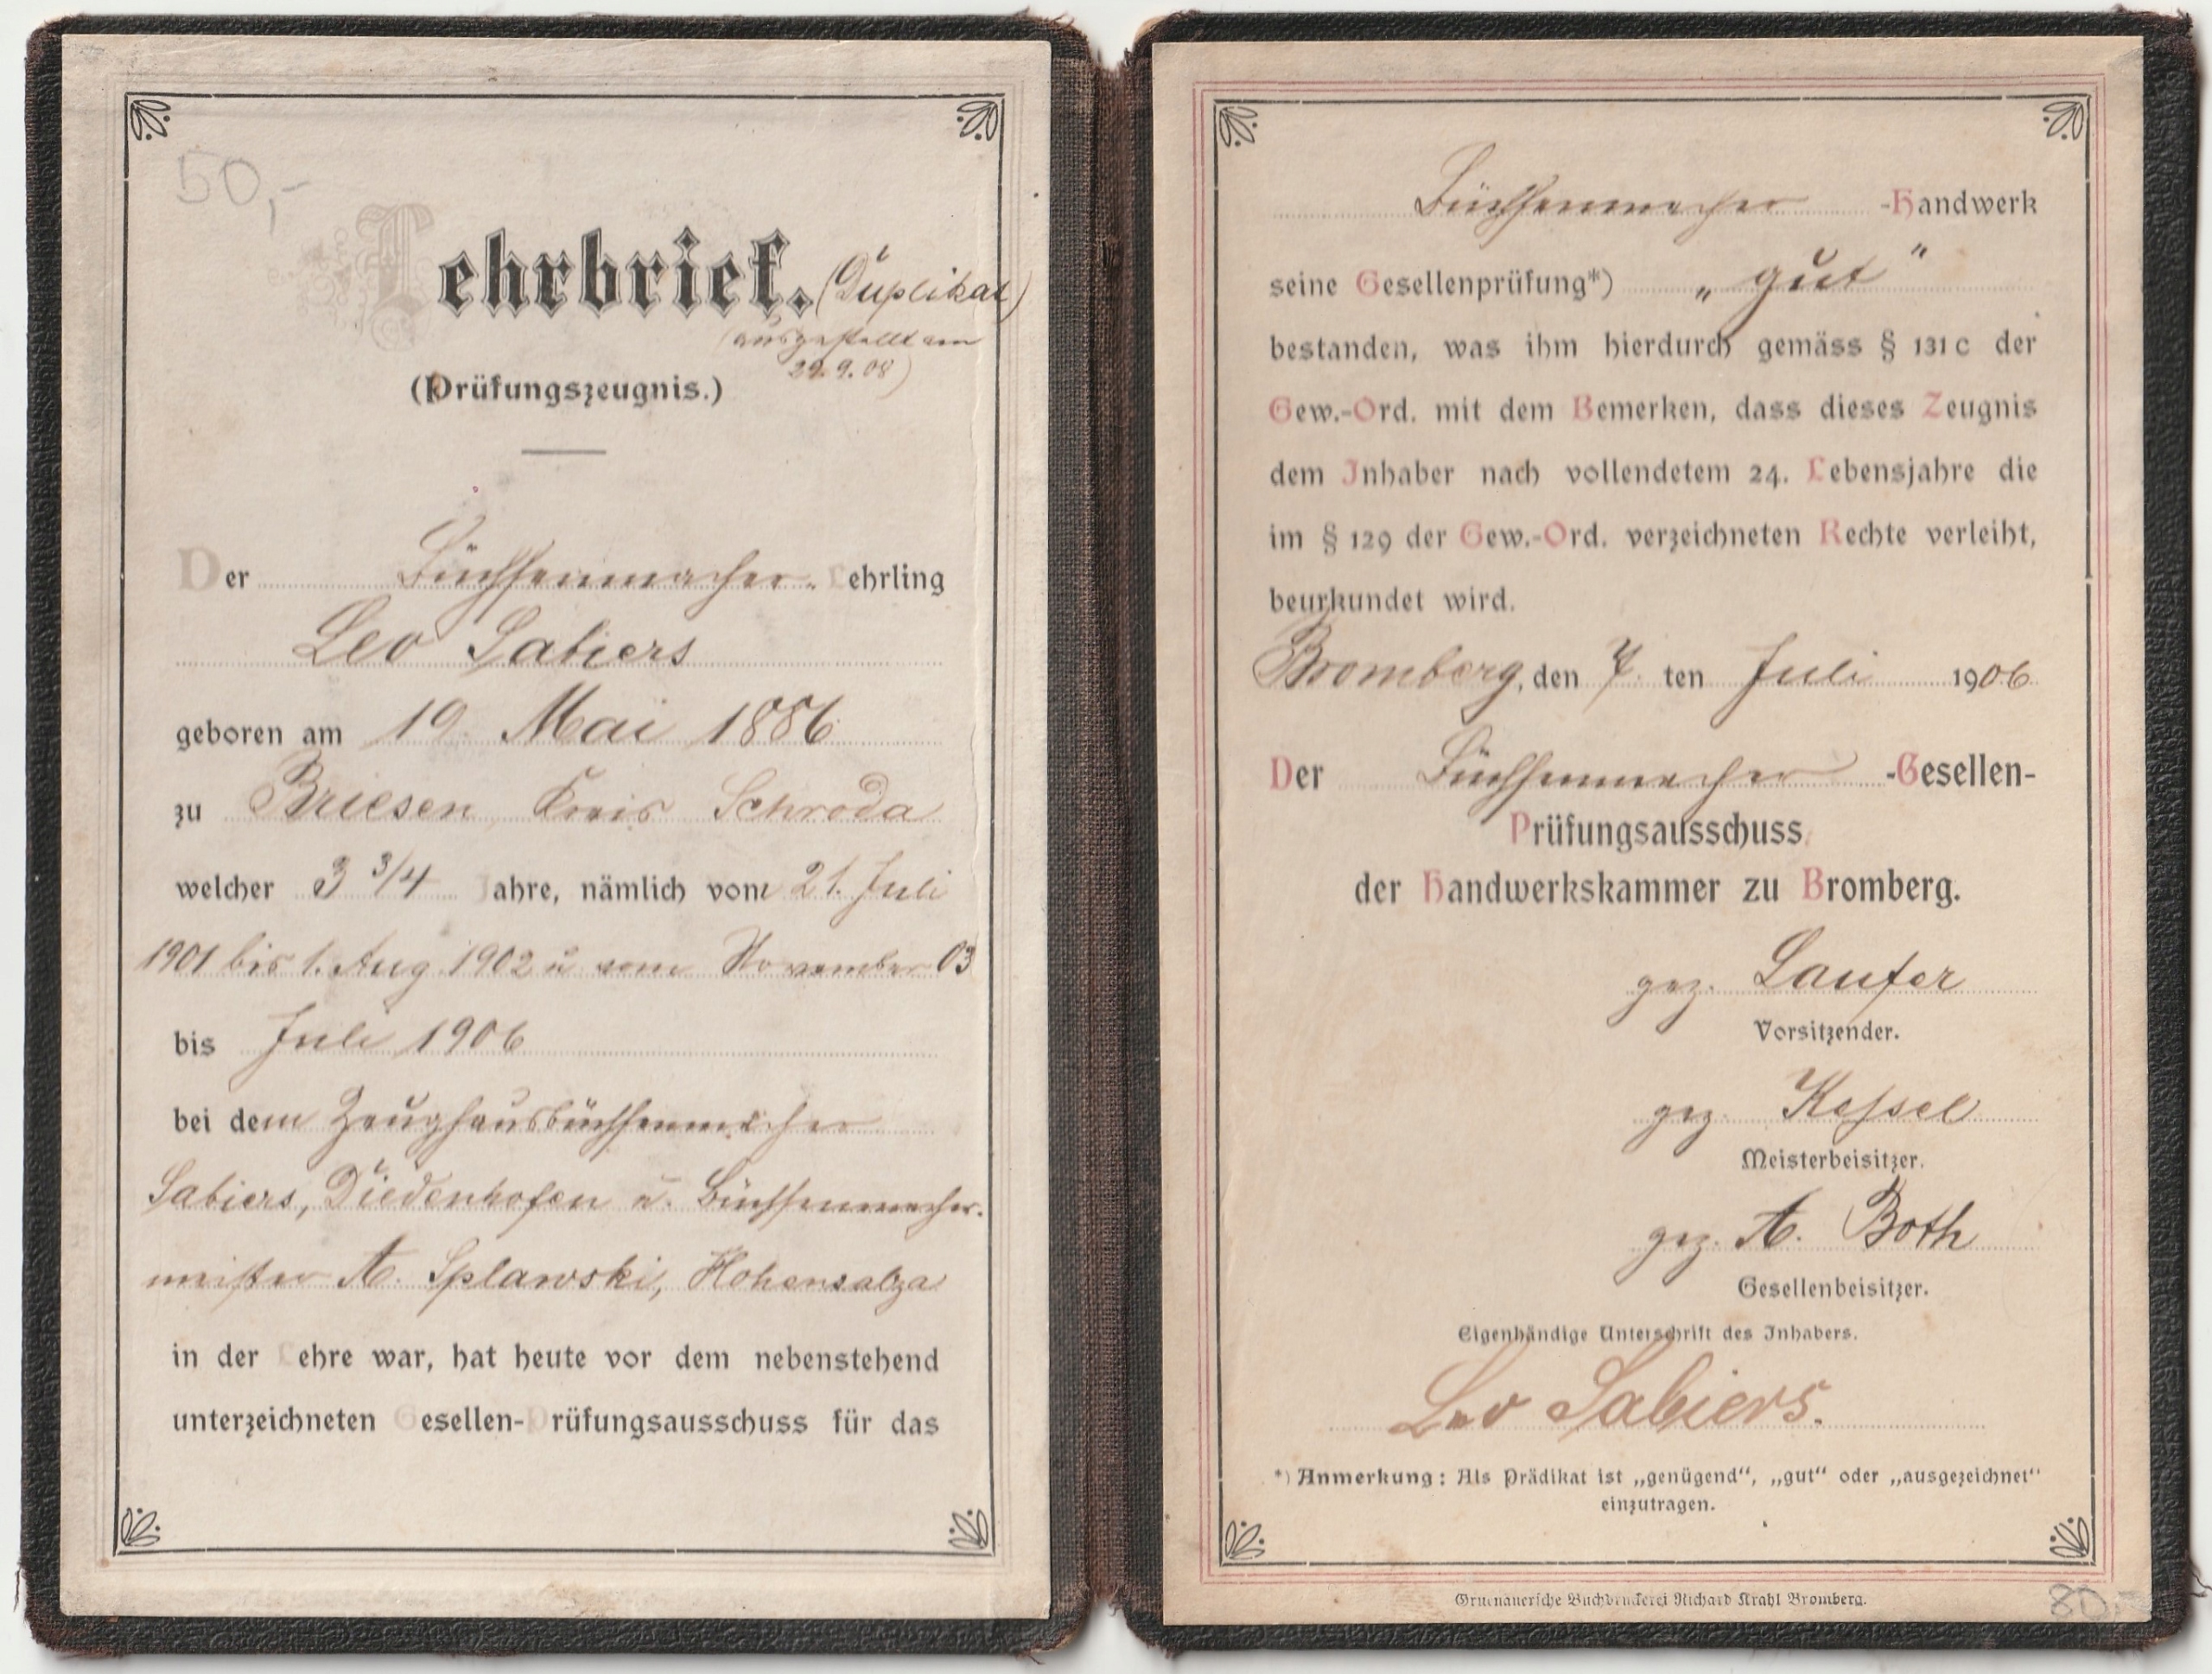 50,-
Lehrbrief. (Duplikat)
(ausgestellt am
29.9.08)
(Prüfungszeugnis.)
Der Büchsenmacher-Lehrling
Leo Sabiers
geboren am 19. Mai 1886
zu Briesen, Kreis Schroda
welcher 3 3/4 Jahre, nämlich vom 21. Juli
1901 bis 1. Aug. 1902 u vom November 03
bis Juli 1906
bei dem Zeughausbüchsenmacher
Sabiers, Diedenhofen u. Büchsenmacher-
meister A. Splawski, Hohensalza
in der Lehre war, hat heute vor dem nebenstehend
unterzeichneten Gesellen-Prüfungsausschuss für das
Büchsenmacher -Handwerk
seine Gesellenprüfung*) „gut"
bestanden, was ihm hierdurch gemäss § 131c der
Gew.-Ord. mit dem Bemerken, dass dieses Zeugnis
dem Inhaber nach vollendetem 24. Lebensjahre die
im § 129 der Gew.-Ord. verzeichneten Rechte verleiht,
beurkundet wird.
Bromberg, den 7. ten Juli 1906
Der Büchsenmacher -Gesellen-
Prüfungsausschuss
der Handwerkskammer zu Bromberg.
gez. Laufer
Vorsitzender.
gez. Kessel
Meisterbeisitzer.
gez. A. Both
Gesellenbeisitzer.
Eigenhändige Unterschrift des Inhabers.
Leo Sabiers.
*) Anmerkung: Als Prädikat ist „genügend“, „gut“ oder „ausgezeichnet“
einzutragen.
Gruenauersche Buchdruckerei Richard Krahl Bromberg.
80,-